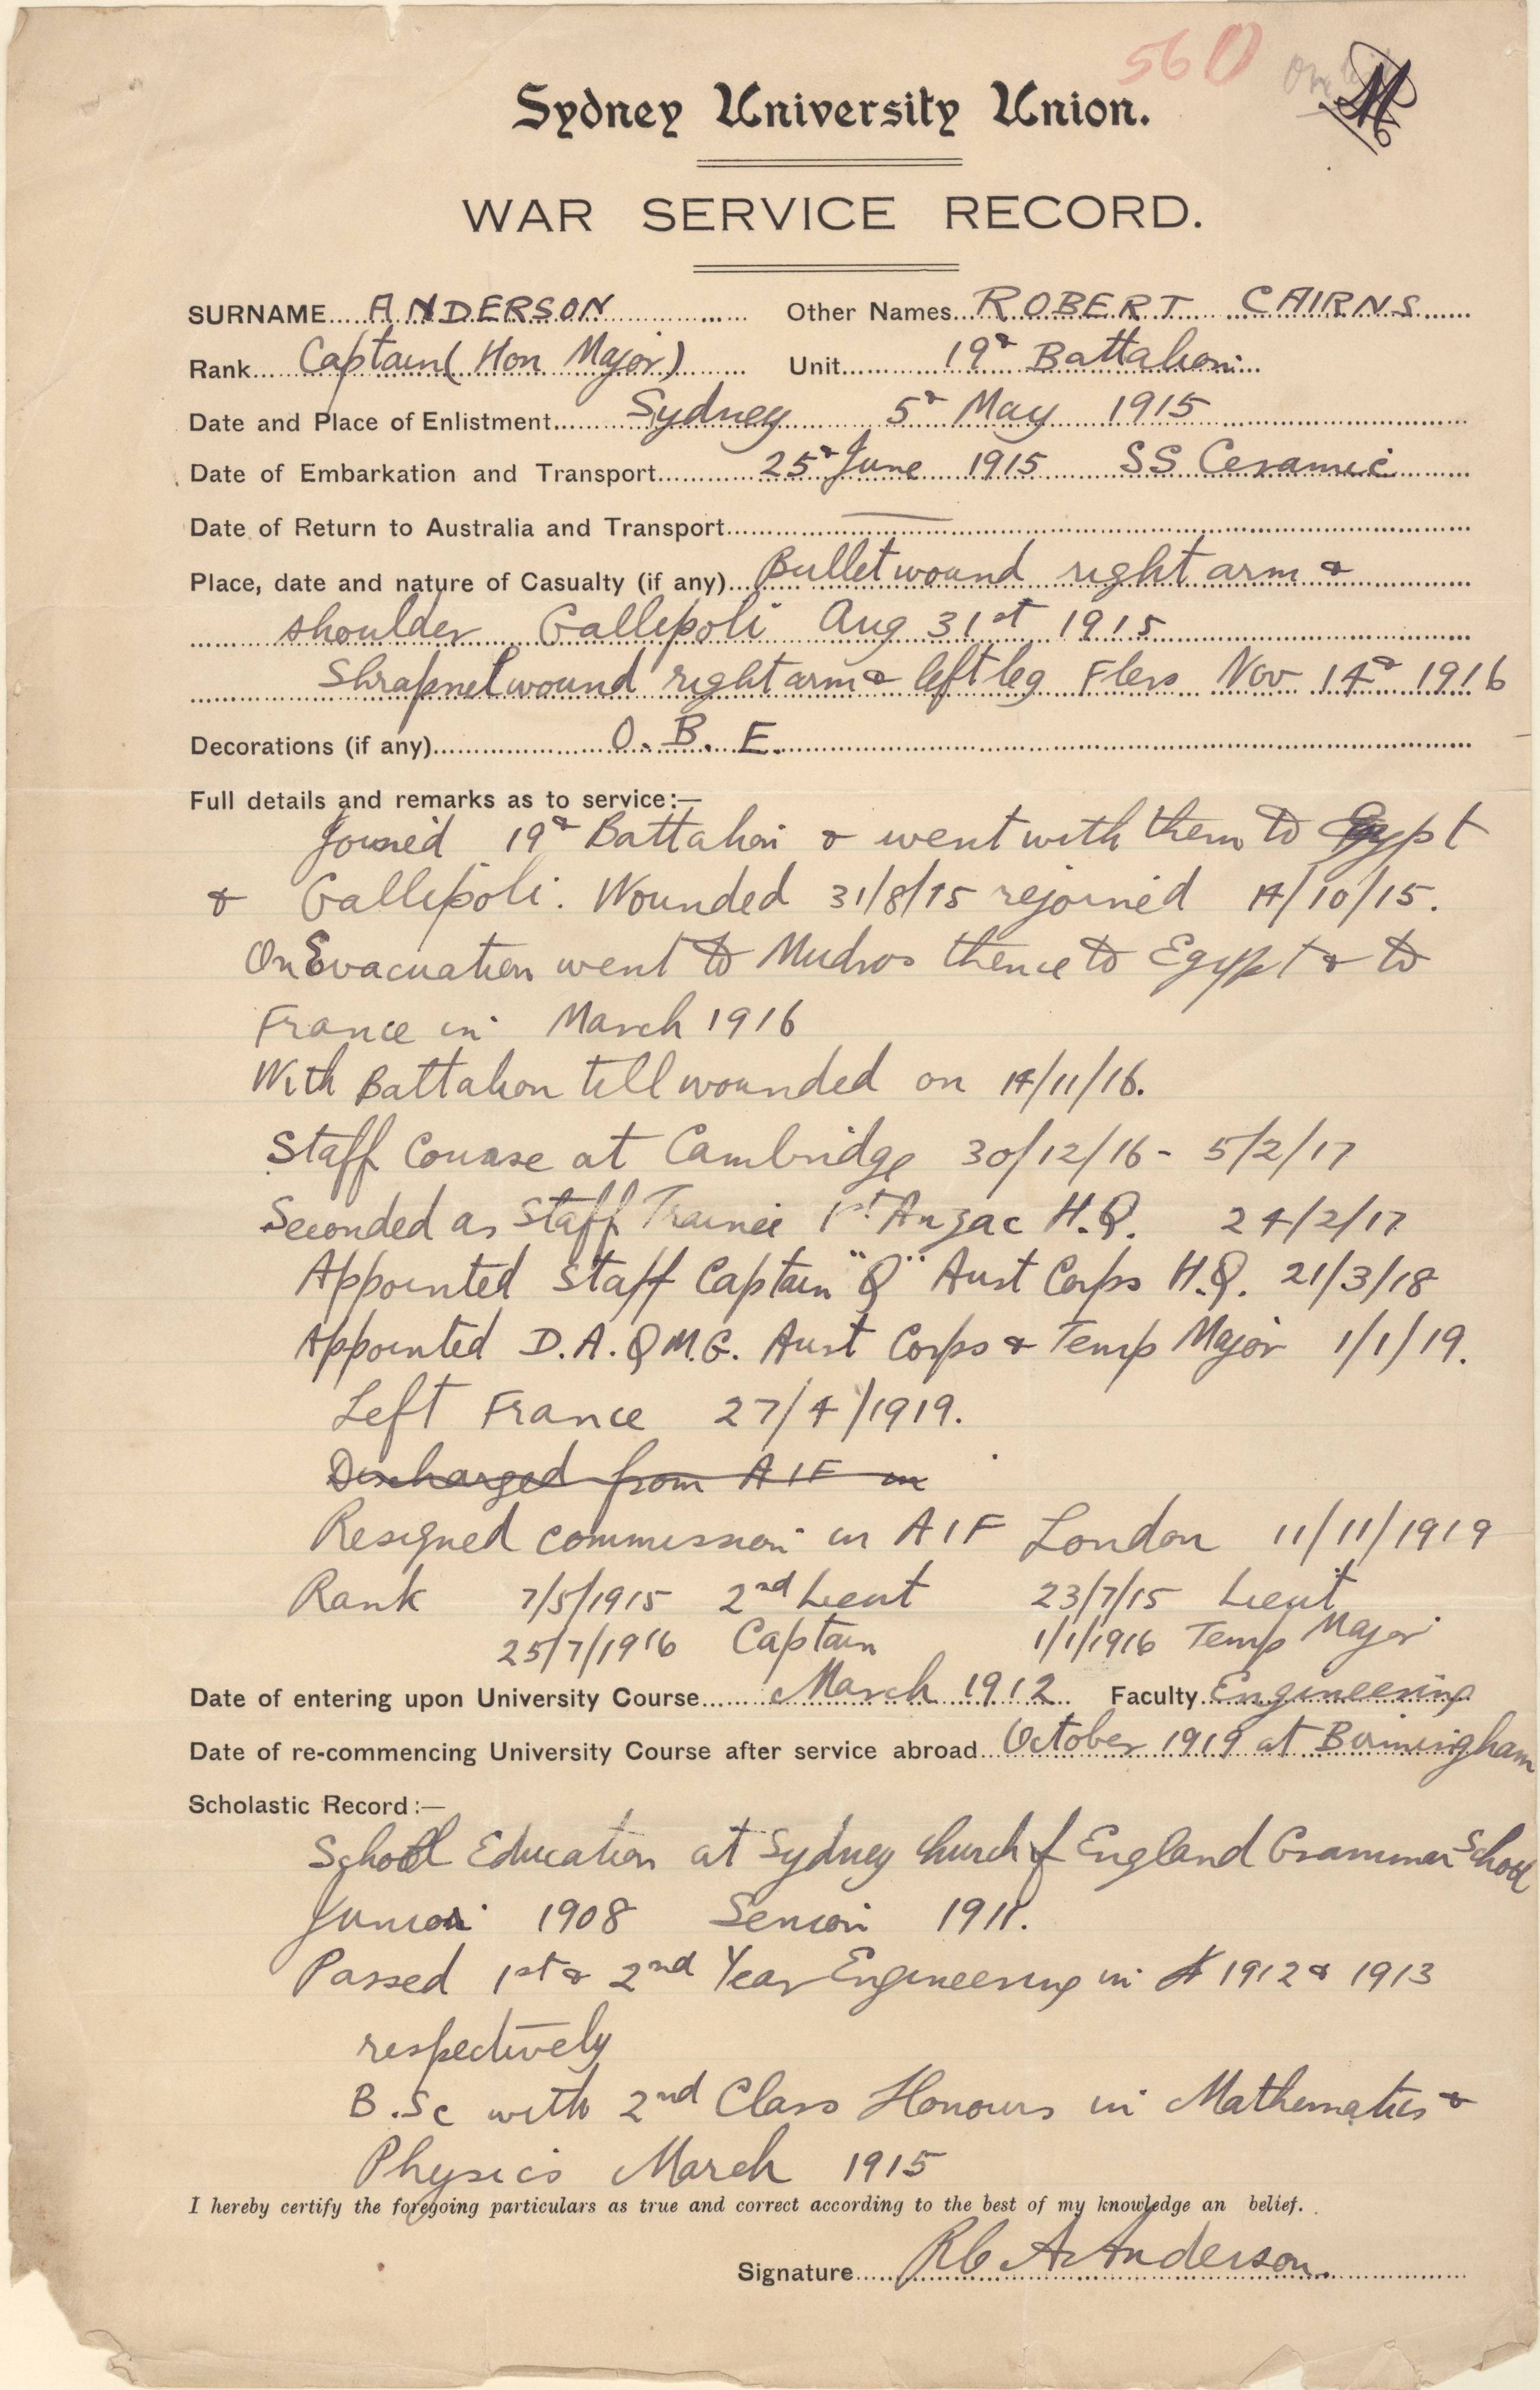 560
Sydney University Union.
WAR SERVICE RECORD.
SURNAME ANDERSON Other Names ROBERT CAIRNS
Rank Captain (Hon Major) Unit 19th Battalion
Date and Place of Enlistment Sydney 5th May 1915
Date of Embarkation and Transport 25th June 1915 SS Ceramic
Date of Return to Australia and Transport —
Place, date and nature of Casualty (if any) Bullet wound right arm &
shoulder Gallipoli Aug 31st 1915
Shrapnel wound right arm & left leg Flers Nov 14th 1916
Decorations (if any) O.B.E.
Full details and remarks as to service:—
Joined 19th Battalion & went with them to Egypt
& Gallipoli. Wounded 31/8/15 rejoined 14/10/15.
On Evacuation went to Mudros thence to Egypt & to
France in March 1916
With Battalion till wounded on 14/11/16.
Staff Course at Cambridge 30/12/16 - 5/2/17
Seconded as Staff Trainee 1st Anzac H.Q. 24/2/17
Appointed Staff Captain "Q" Aust Corps H.Q. 21/3/18
Appointed D.A.Q.M.G. Aust Corps & Temp Major 1/1/19.
Left France 27/4/1919.
Discharged from AIF on
Resigned commission in AIF London 11/11/1919
Rank 7/5/1915 2nd Lieut 23/7/15 Lieut
25/7/1916 Captain 1/1/1916 Temp Major
Date of entering upon University Course March 1912 Faculty Engineering
Date of re-commencing University Course after service abroad October 1919 at Birmingham
Scholastic Record:—
School Education at Sydney Church of England Grammar School
Junior 1908 Senior 1911.
Passed 1st & 2nd Year Engineering in 1912 & 1913
respectively
B.Sc with 2nd Class Honours in Mathematics &
Physics March 1915
I hereby certify the foregoing particulars as true and correct according to the best of my knowledge an belief.
Signature R C A Anderson.